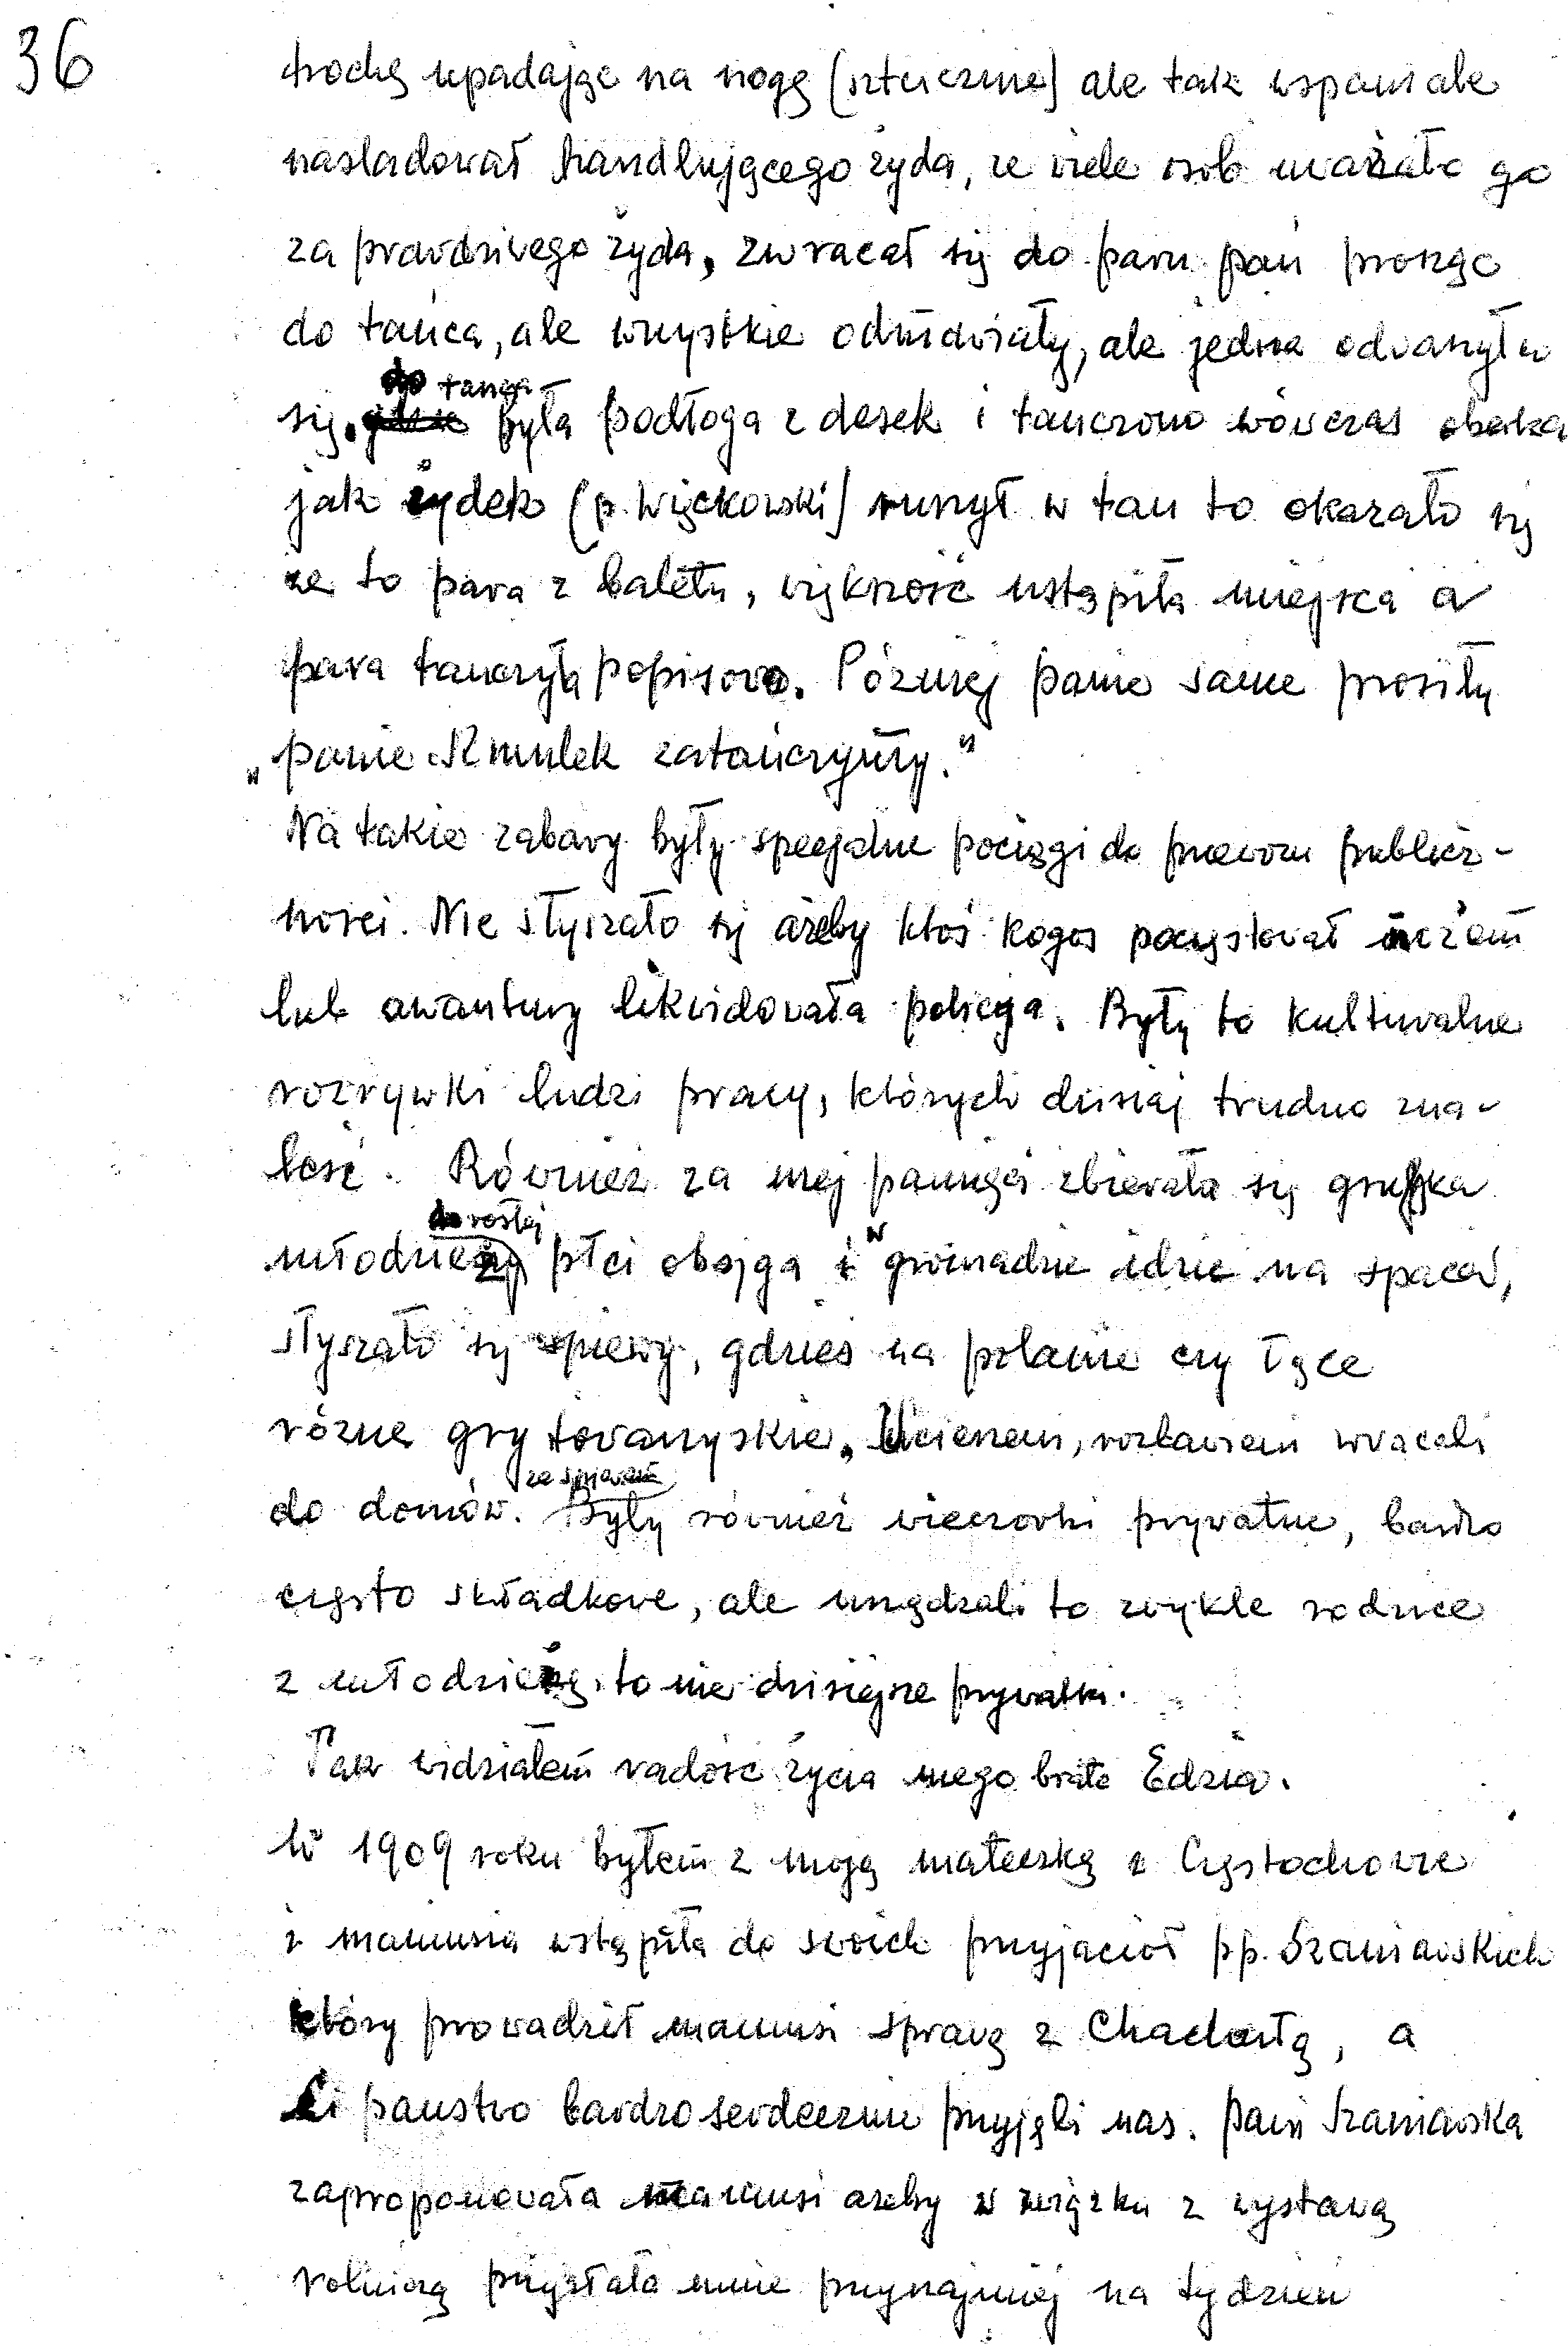 36
trochę upadając na nogę (sztucznie) ale tak wspaniale
nasladował handlującego żyda, ze wiele osób uważało go
za prawdziwego żyda, zwracał się do paru pań prosząc
do tańca, ale wszystkie odmawiały, ale jedna odważyła
do tanga
się. była podłoga z desek i tanczono wówczas oberka
jak żydek (p. Więckowski) ruszył w tan to okazało się
ze to para z baletu, większość ustąpiła miejsca a
para tanczyła popisowo. Pózniej panie same prosiły
„panie Szmulek zatańczymy."
Na takie zabawy były specjalne pociągi do przewozu publicz-
ności. Nie słyszało się ażeby ktoś kogoś poczęstował nożem
lub awantury likwidowała policja. Były to kulturalne
rozrywki ludzi pracy, których dzisiaj trudno zna-
leść. Również za mej pamięci zbierała się grupka
dorosłej
młodzieży płci obojga i w gromadzie idzie na spacer,
słyszało się spiewy, gdzieś na polanie czy łące
rózne gry towarzyskie. Ucieszeni, rozbawieni wracali
ze śpiewem
do domów. Były również wieczorki prywatne, bardzo
często składkowe, ale urządzali to zwykle rodzice
z młodzieżą, to nie dzisiejsze prywatki.
Tak widziałem radość życia mego brata Edzia.
W 1909 roku byłem z moją mateczką w Częstochowie
i mamusia wstąpiła do swoich przyjaciół pp. Szaniawskich
który prowadził mamusi sprawę z Chadartą, a
Ci panstwo bardzo serdecznie przyjęli nas. pani Szaniawska
zaproponowała mamusi azeby w związku z wystawą
rolniczą przysłała mnie przynajmniej na tydzień